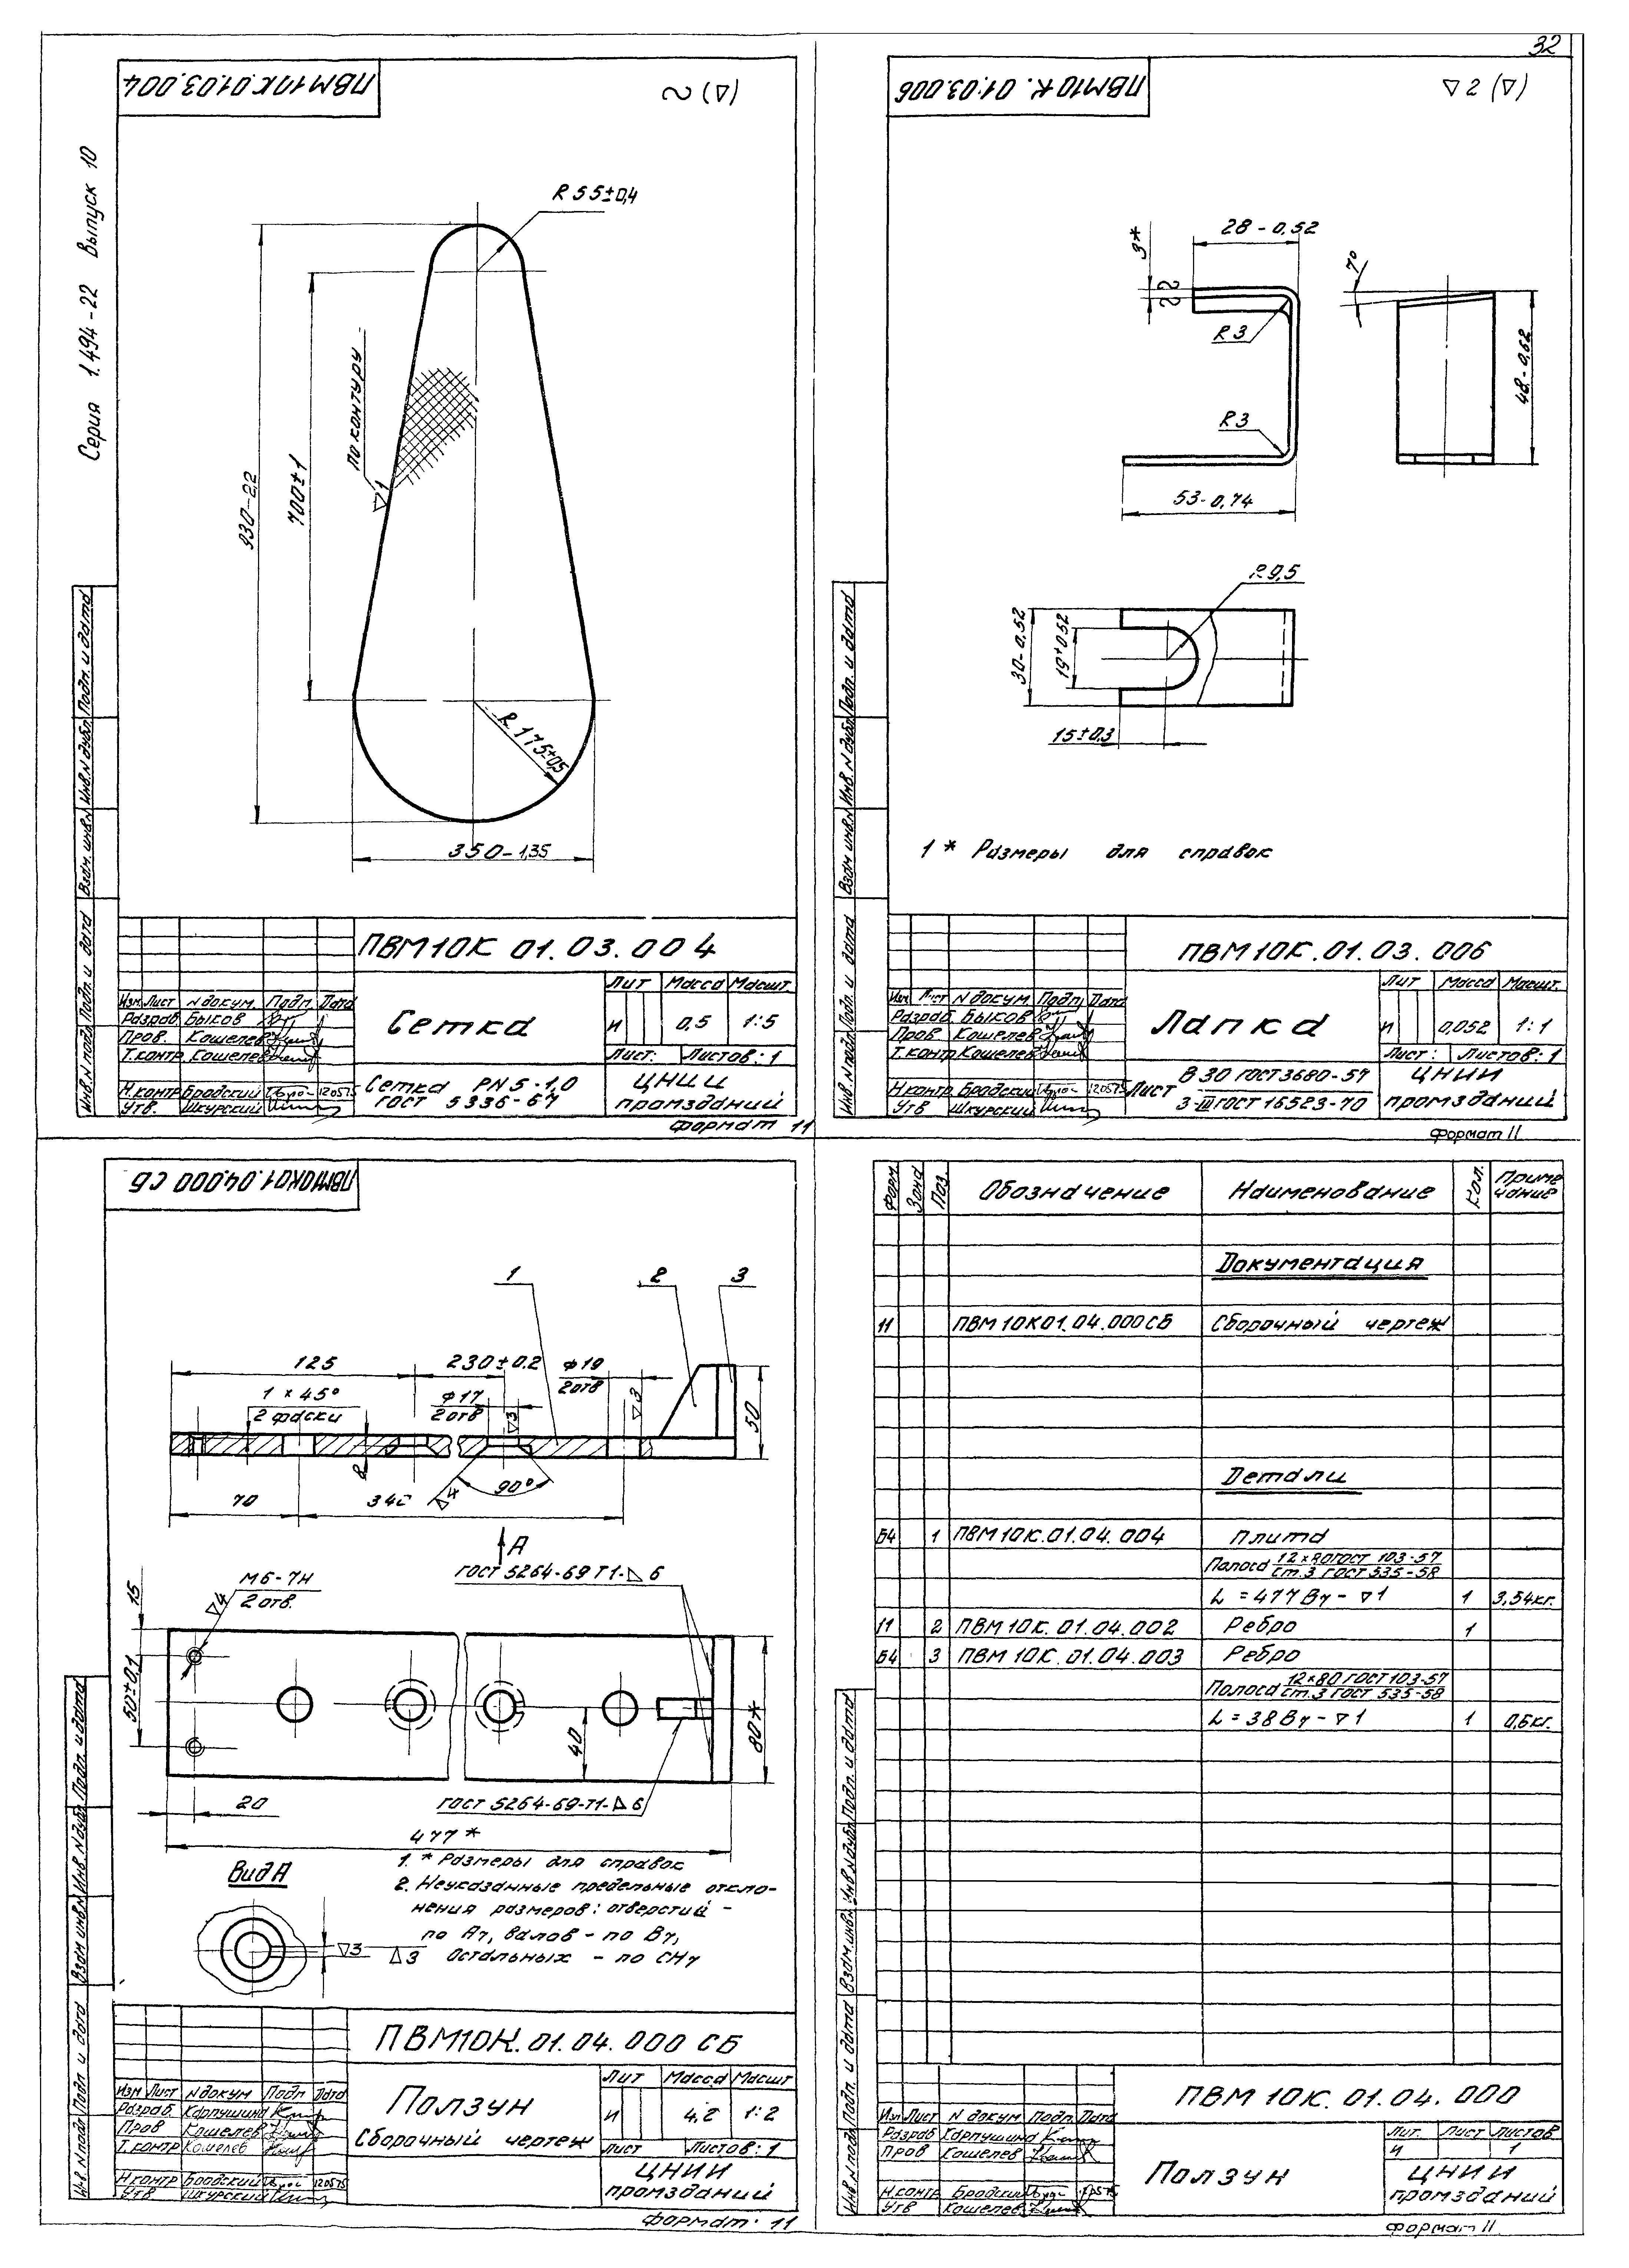 32
Серия 1.494-22 Выпуск 10
ПВМ10К.01.03.004
~ (▽)
R 55±0,4
930-2,2
700±1
по контуру
▽1
R 175±0,5
350-1,35
Инв.N подл. Подп. и дата Взам. инв.N Инв.N дубл. Подп. и дата
ПВМ10К 01.03.004
Изм. Лист N докум. Подп. Дата
Разраб. Быков
Пров. Кошелев
Т.контр. Кошелев
Н.контр. Бродский 120575
Утв. Шкурский
Сетка
Лит Масса Масшт.
И 0,5 1:5
Лист: Листов: 1
Сетка РN 5-1,0
ГОСТ 5336-67
ЦНИИ
промзданий
Формат 11
ПВМ10К.01.03.006
▽2 (▽)
3*
28-0,52
7°
R3
R3
48-0,62
53-0,74
R 9,5
30-0,52
19+0,52
15±0,3
1 * Размеры для справок
Инв.N подл. Подп. и дата Взам. инв.N Инв.N дубл. Подп. и дата
ПВМ10К.01.03.006
Изм. Лист N докум. Подп. Дата
Разраб. Быков
Пров. Кошелев
Т.контр. Кошелев
Н.контр. Бродский 120575
Утв Шкурский
Лапка
Лит Масса Масшт.
И 0,052 1:1
Лист: Листов: 1
Лист В 30 ГОСТ 3680-57
3-III ГОСТ 16523-70
ЦНИИ
промзданий
Формат 11
ПВМ10К01.04.000 СБ
1 2 3
125
230±0,2
ф19
2 отв
1 × 45°
2 фаски
ф17
2 отв
▽3
▽3
50
8
70
340
▽4
90°
А
ГОСТ 5264-69 Т1-△6
М6-7Н
2 отв.
▽4
15
50±0,1
40
80*
20
ГОСТ 5264-69-Т1-△6
477*
Вид А
▽3
▽3
1. * Размеры для справок
2. Неуказанные предельные откло-
нения размеров: отверстий -
по А7, валов - по В7,
Остальных - по СМ7
Инв.N подл. Подп. и дата Взам инв.N Инв.N дубл. Подп. и дата
ПВМ10К.01.04.000 СБ
Изм Лист N докум Подп Дата
Разраб. Карпушина
Пров Кошелев
Т.контр Кошелев
Н.контр Бродский 120575
Утв Шкурский
Ползун
Сборочный чертеж
Лит Масса Масшт
И 4,2 1:2
Лист Листов: 1
ЦНИИ
промзданий
Формат 11
Форм Зона Поз. Обозначение Наименование Кол. Приме
чание
Документация
11 ПВМ10К01.04.000СБ Сборочный чертеж
Детали
Б4 1 ПВМ10К.01.04.004 Плита
Полоса 12×80 ГОСТ 103-57
ст.3 ГОСТ 535-58
L = 477 В7 - ▽1 1 3,54кг.
11 2 ПВМ10К.01.04.002 Ребро 1
Б4 3 ПВМ10К.01.04.003 Ребро
Полоса 12×80 ГОСТ 103-57
ст.3 ГОСТ 535-58
L = 38 В7 - ▽1 1 0,6кг.
Инв.N подл. Подп. и дата Взам.инв.N Инв.N дубл. Подп. и дата
ПВМ10К.01.04.000
Изм Лист N докум Подп Дата
Разраб Карпушина
Пров Кошелев
Н.контр. Бродский
Утв Кошелев
Ползун
Лит. Лист Листов
И 1
ЦНИИ
промзданий
Формат 11